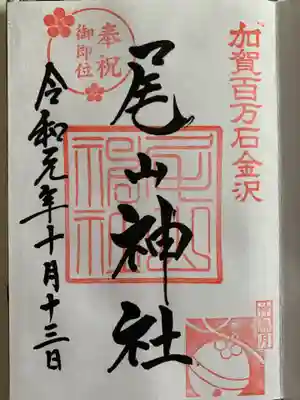 加賀百万石金沢
奉祝
御即位
尾山神社
令和元年十月十三日